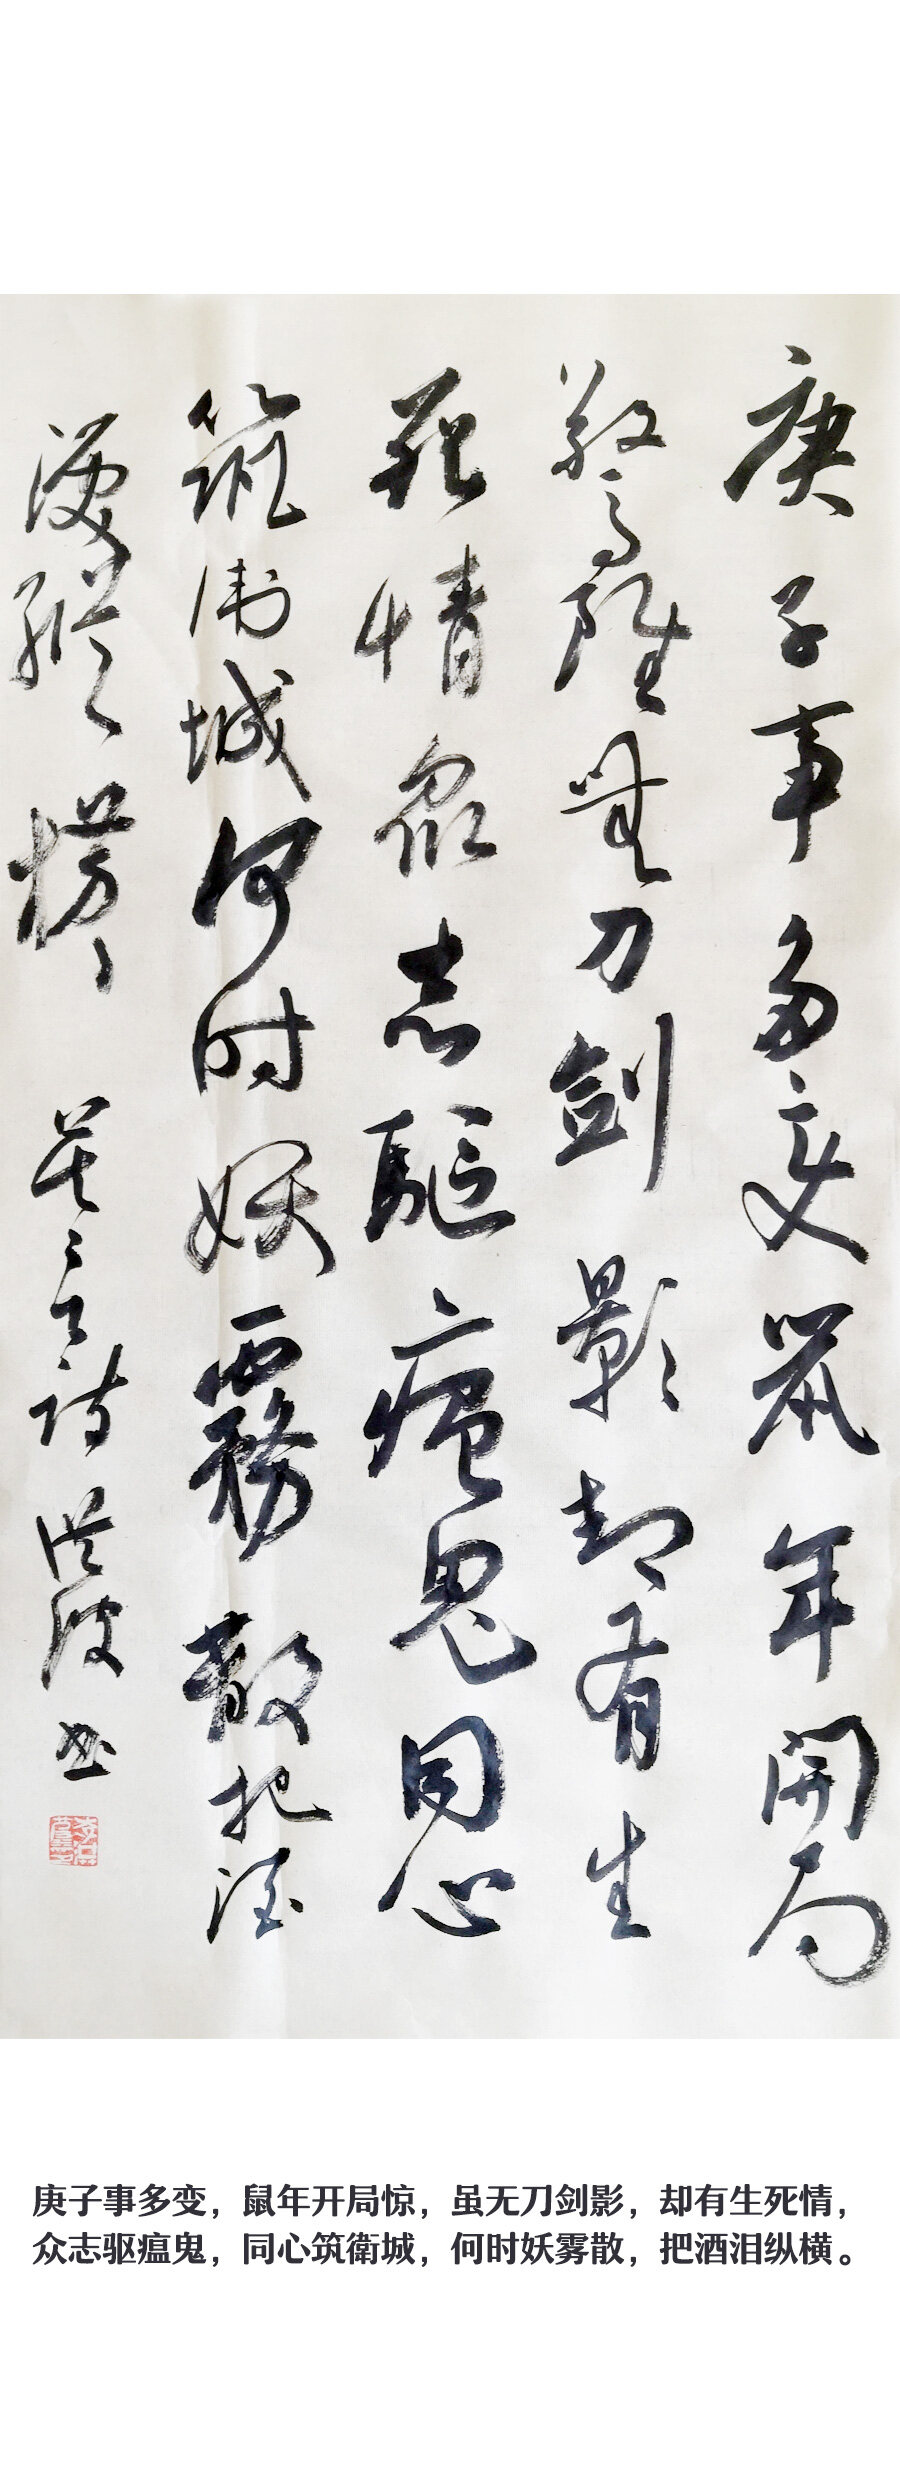 庚子事多变鼠年開局
驚雖無刀劍影却有生
死情眾志驅瘟鬼同心
筑衛城何时妖霧散把酒
淚縱横
詩洪波书
庚子事多变，鼠年开局惊，虽无刀剑影，却有生死情，
众志驱瘟鬼，同心筑衛城，何时妖雾散，把酒泪纵横。